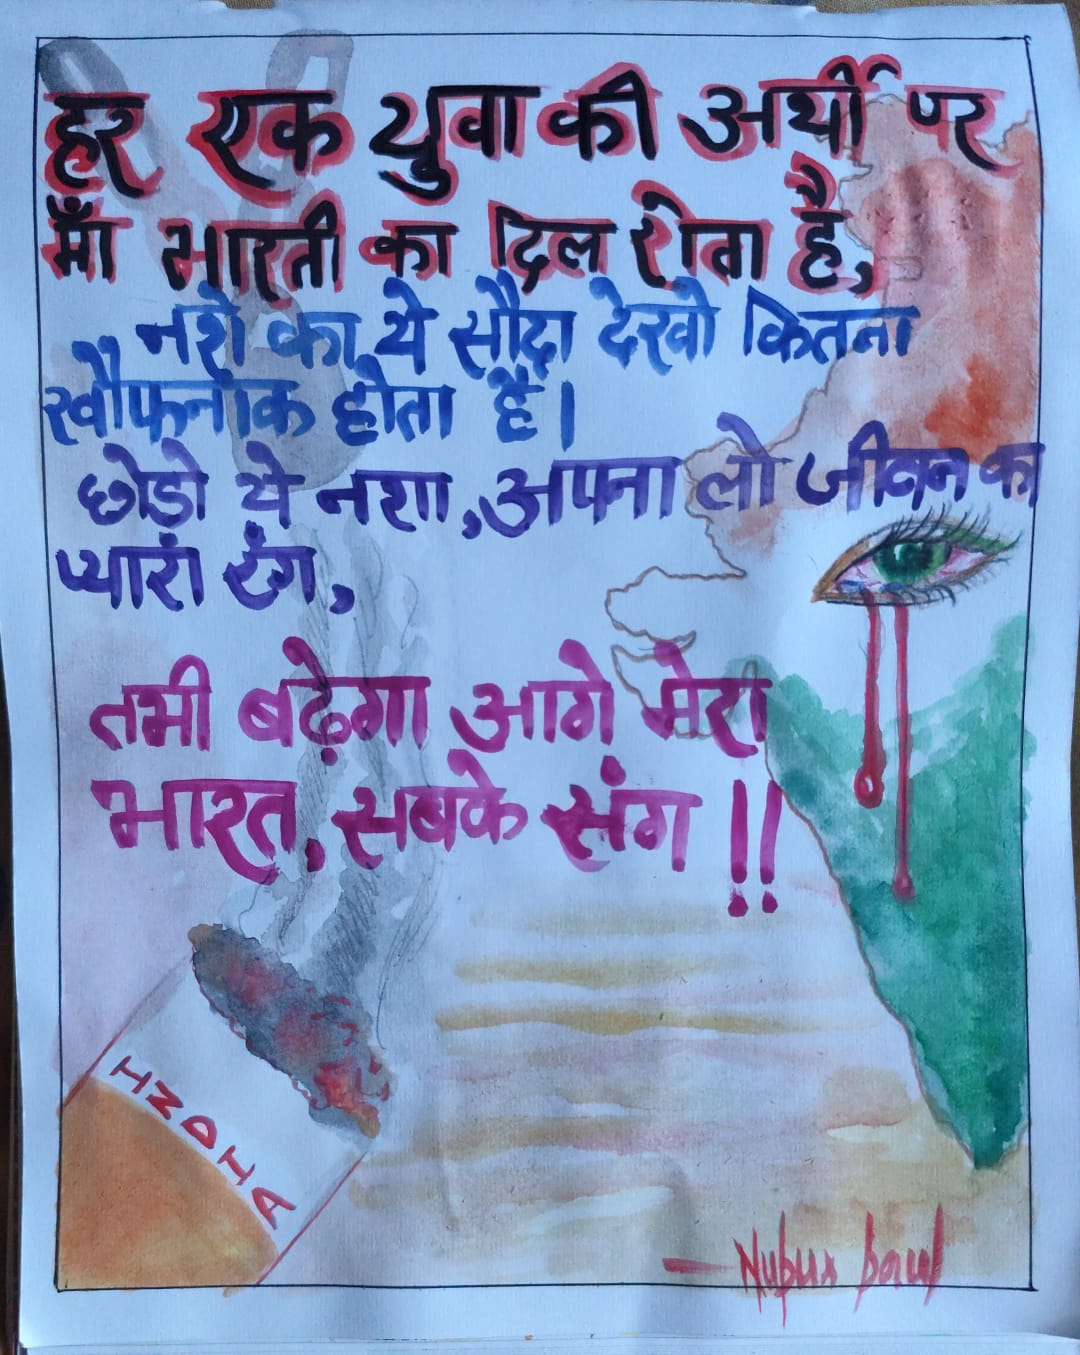 हर एक युवा की अर्थी पर
माँ भारती का दिल रोता है,
नशे का ये सौदा देखो कितना
खौफनाक होता है।
छोडो ये नशा, अपना लो जीवन का
प्यारा रंग,
तभी बढ़ेगा आगे मेरा
भारत, सबके संग !!
INDIA
— Nupur Paul